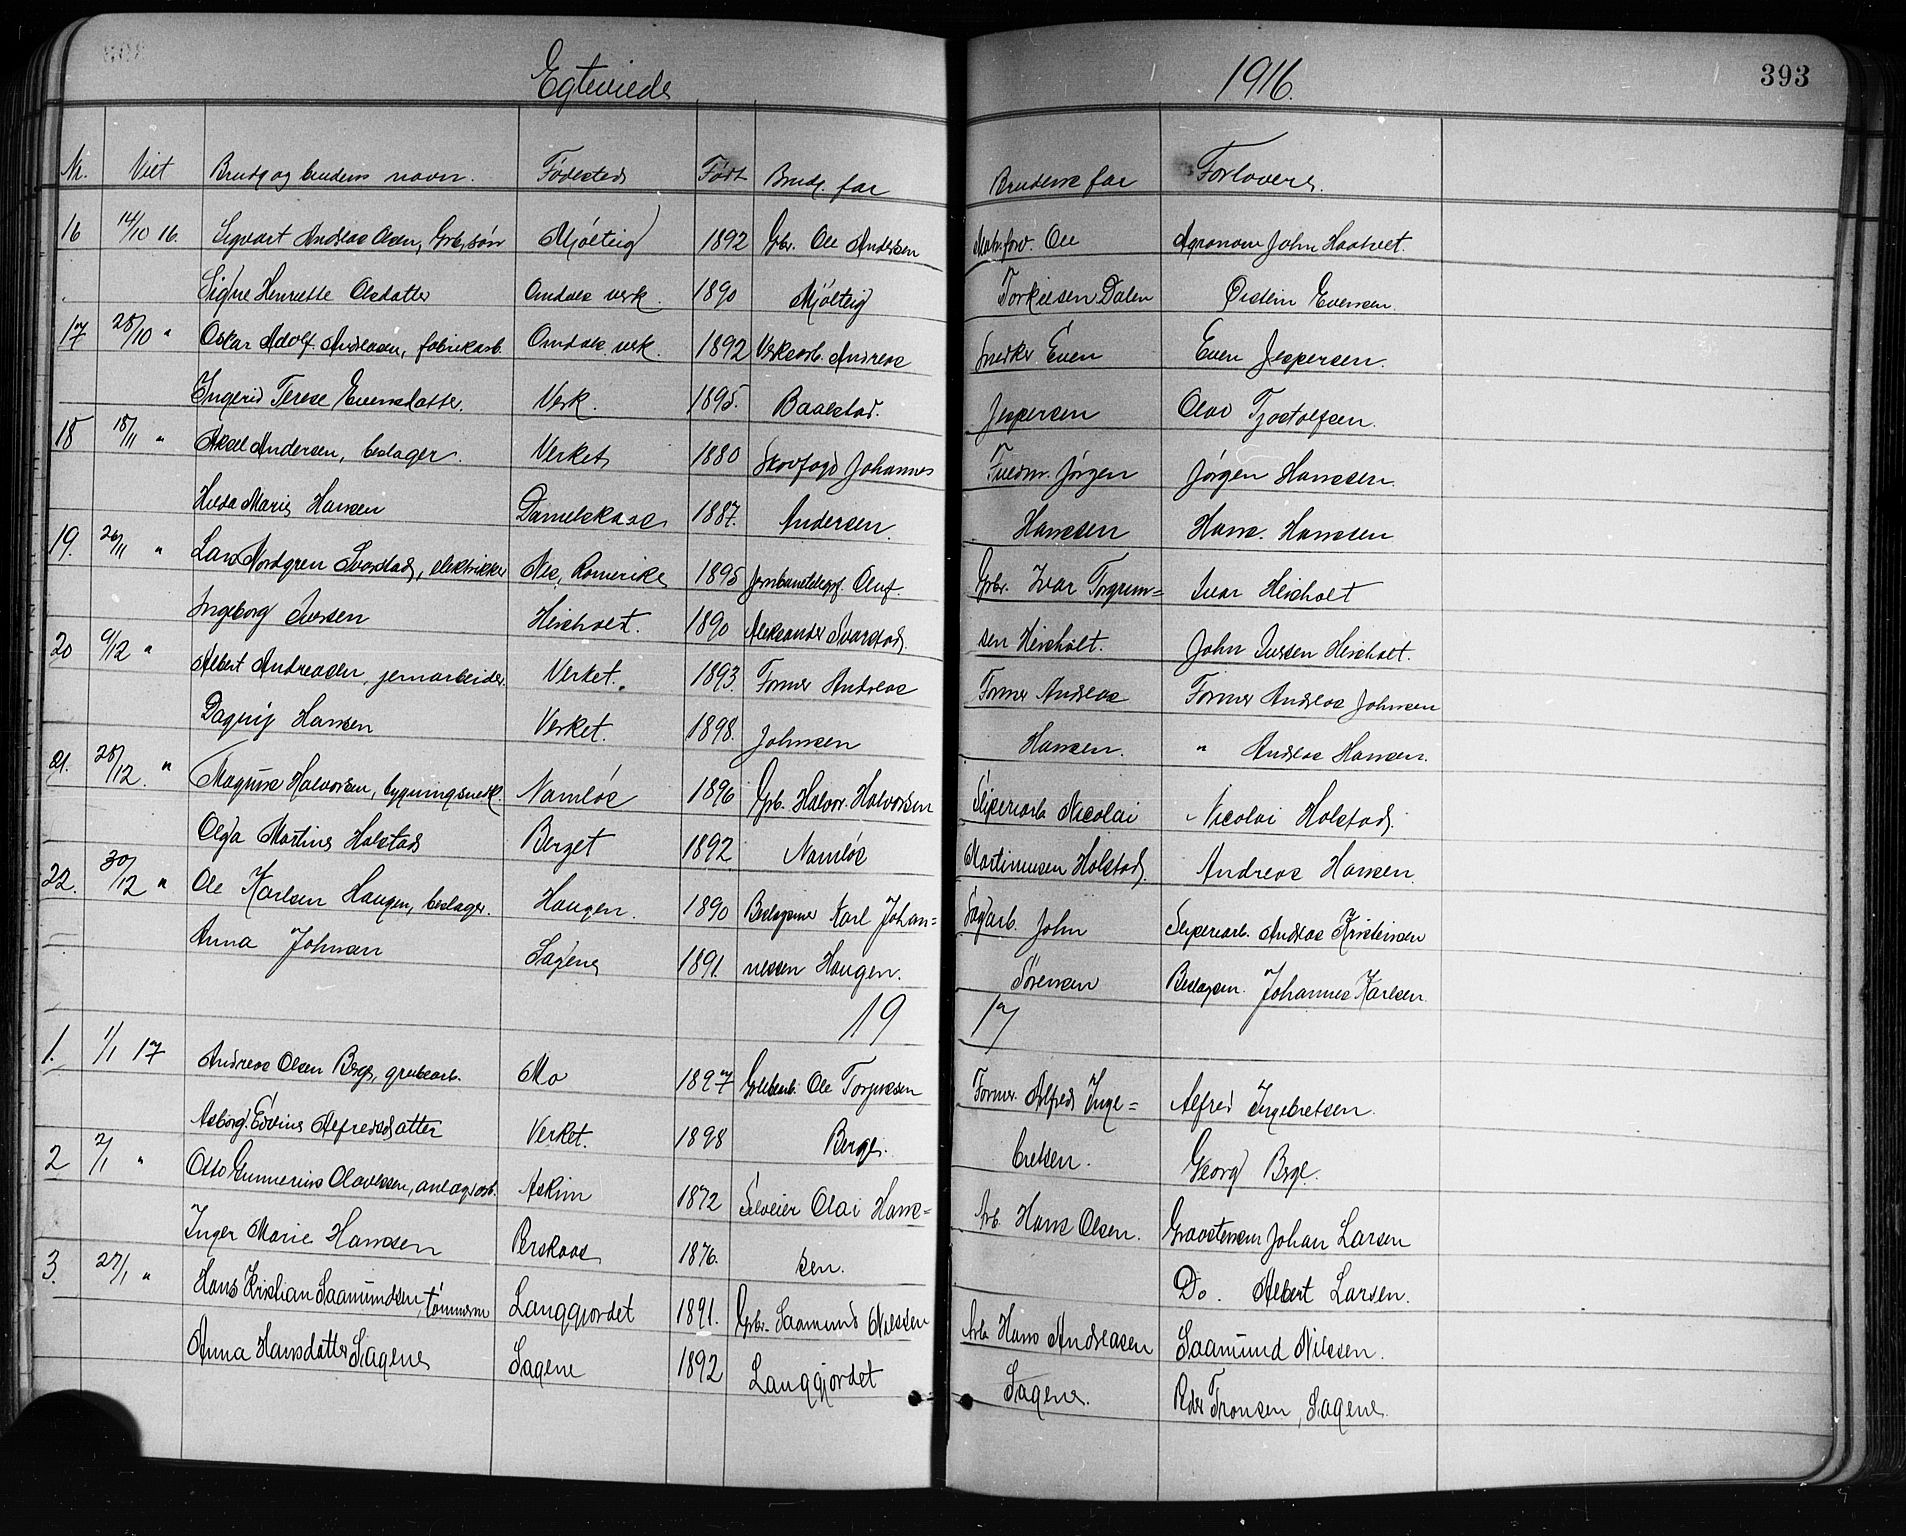 Egteviede 1916. 393
Nr. Viet Brudg. og brudens navn. Fødested Født Brudg. far Brudens far Forlovere.
16 14/10 16. Sigvart Andreas Olsen, Grbr.søn Mjølteig 1892 Gbr. Ole Andersen Ole Agronom John Haatvet.
Signe Henriette Olsdatter Omdals verk. 1890 Mjølteig Torkilsen Dalen Øistein Evensen.
17 28/10 " Oskar Adolf Andreasen, fabrikarb. Omdals verk. 1892 Verksarb. Andreas Snedker Even Even Jespersen.
Ingerid Terese Evensdatter. Verk. 1895. Baalstad. Jespersen Olav Tjostolfsen.
18 18/11 " Aksel Andersen, beslager. Verket 1880 Skovfogd Johannes Fuldm. Jørgen Jørgen Hanssen.
Hilda Marie Hansen Danielskaas 1887. Andersen. Hanssen Hans. Hanssen
19. 26/11 " Lars Nordgren Svarstad, elektriker Nes, Romerike 1895 Jernbanetelegf. Oluf Gbr. Ivar Torgrim= Ivar Heisholt
Ingeborg Iversen Heisholt. 1890 Aleksander Svarstad. sen Heisholt. John Iversen Heisholt.
20 9/12 " Albert Andreasen, jernarbeider. Verket. 1893. Former Andreas Former Andreas Former Andreas Johnsen
Dagny Hansen Verket. 1898. Johnsen Hansen. " Andreas Hansen.
21. 28/12. " Magnus Halvorsen, bygningssnedk. Namløs 1896 Grb. Halvor Halvorsen Sliperiarb. Nicolai Nicolai Holstad.
Olga Martine Holstad Berget 1892 Namløs Martinussen Holstad. Andreas Hansen.
22. 30/12 " Ole Karlsen Haugen, beslager. Haugen. 1890 Beslagsmr Karl Johan= Sagarb. John Sliperiarb. Andreas Kristensen
Anna Johnsen Sagene 1891. nessen Haugen. Sørensen Beslagsm. Johannes Karlsen.
19 17
1. 1/1 17 Andreas Olsen Berge, grubearb. Mo 1897 Grubearb. Ole Torjussen Former. Alfred Inge= Alfred Ingebretsen.
Asborg Edvine Alfredsdatter Verket. 1898 Berge. bretsen. Georg Berge.
2 2/1 " Otto Gunnerius Olavessen, anlægsarb. Askim 1872 Selveier Olai Hans= Arb. Hans Olsen. Graastensm Johan Larsen
Inger Marie Hanssen Berskaas 1876. sen. Do. Albert Larsen.
3. 27/1 " Hans Kristian Saamundsen, tømmerm Langgjordet 1891. Gbr. Saamund Nilssen Arb. Hans Andreasen Saamund Nilssen.
Anna Hansdatter Sagene Sagene 1892 Langgjordet Sagene. Peder Tronsen, Sagene.